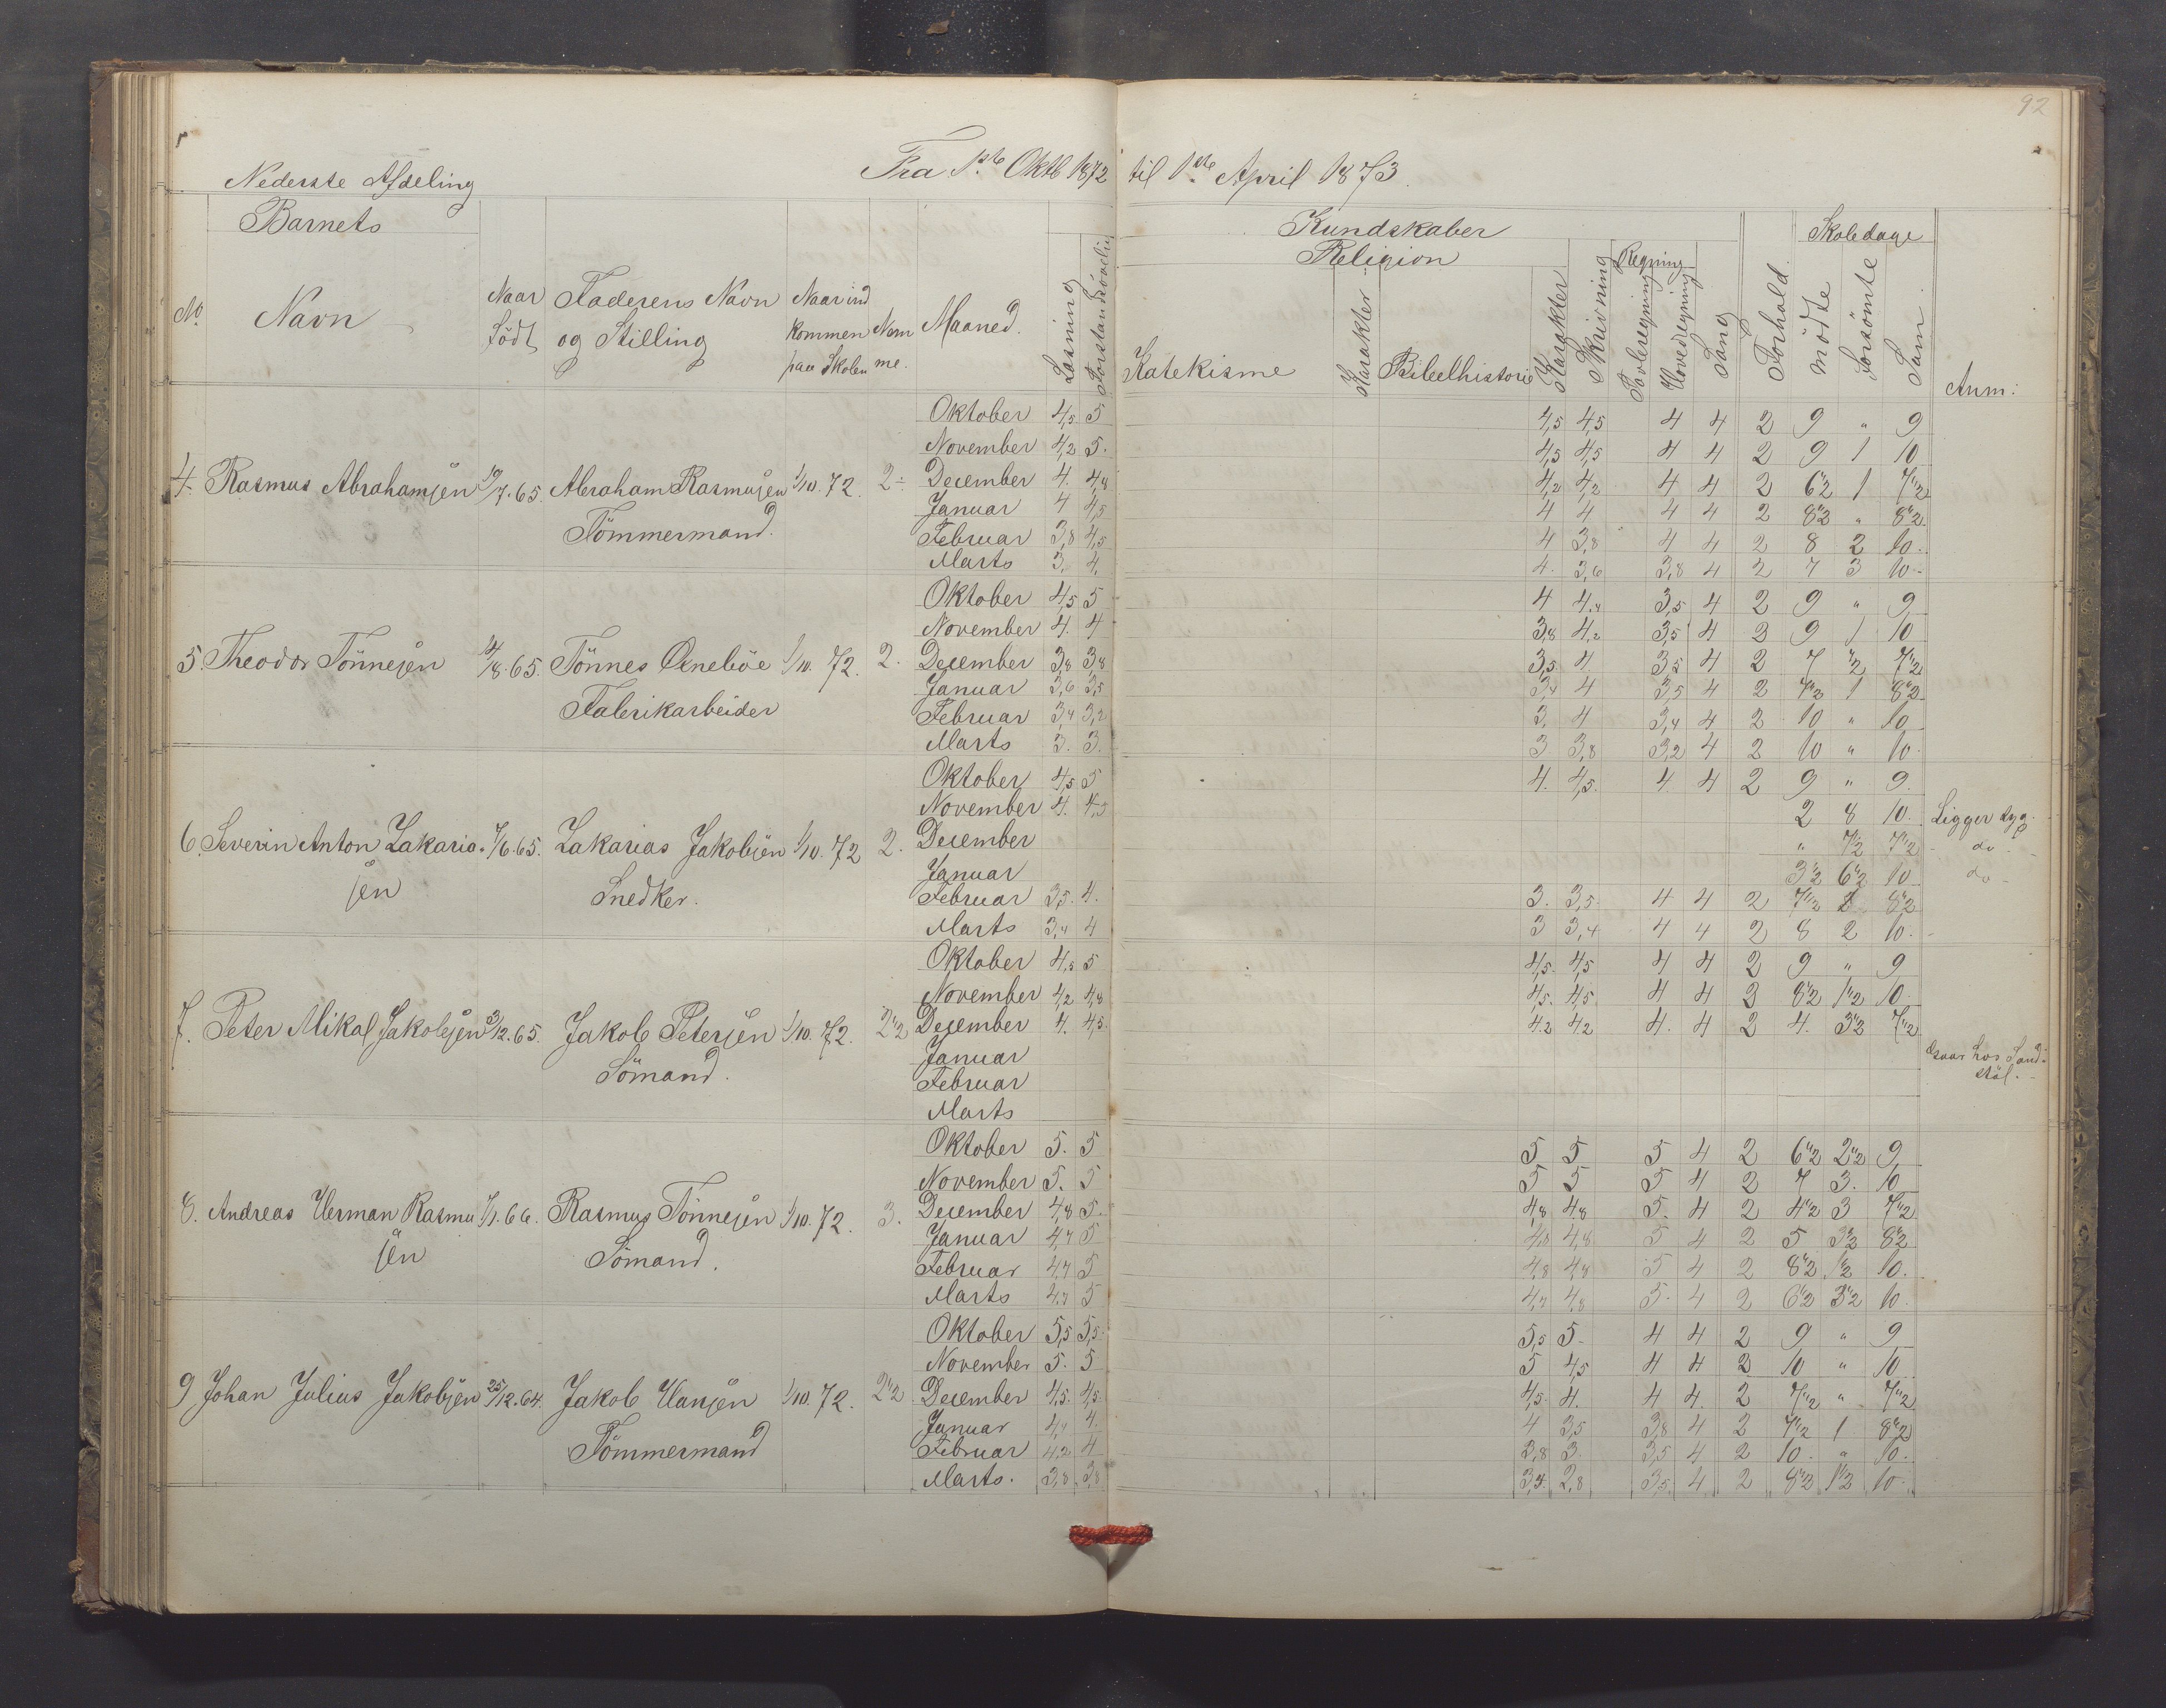 92
Nederste Afdeling
Fra 1ste Oktb 1872 til 1ste April 1873.
Barnets Kundskaber Skoledage
Religion Regning
No Navn Naar født Faderens Navn og Stilling Naar ind kommen paa Skolen Nem me. Maaned. Læsning Forstandsøvelse Katekisme Karakter Bibelhistorie Karakter Skrivning Tavleregning Hovedregning Sang Forhold mødte Forsømte Sum. Anm:
Oktober 4,5 5 4,5 4,5 4 4 2 9 " 9
November 4,2 5. 4,5 4,5 4 4 2 9 1 10
4. Rasmus Abrahamsen 19/7.65. Abraham Rasmusen 1/10.72. 2÷ December 4. 4,8 4,2 4,2 4 4 2 6"2 1 7"2
Januar 4 4,5 4 4 4 4 2 8"2 " 8"2
Tømmermand. Februar 3,8 4,5 4 3,8 4 4 2 8 2 10.
Marts 3. 4. 4. 3,6 3,8 4 2 7 3 10.
Oktober 4,5 5 4 4,4 3,5 4 2 9 " 9
November 4. 4 3,8 4,2 3,5 4 2 9 1 10
5. Theodor Tønnesen 14/8.65. Tønnes Øneböe 1/10.72. 2. December 3,8 3,8 3,5 4. 3,5 4 2 7 "2 7"2
Januar 3,6 3,5 3,4 4 3,5 4 2 7"2 1 8"2
Fabrikarbeider Februar 3,4 3,2 3. 4 3,4 4 2 10 " 10
Marts 3. 3. 3 3,8 3,2 4 2 10 " 10.
Oktober 4,5 5 4. 4,5. 4. 4 2 9 " 9.
November 4. 4,5 2 8 10. Ligger syg.
6. Severin Anton Zakaria- 7/6.65. Zakarias Jakobsen 1/10.72 2. December " 7"2 7"2 do
Januar 3"2 6"2 10 do
sen Snedker. Februar 3,5. 4. 3. 3,5. 4 4 2 7"2 1 8"2
Marts 3,4 4 3 3,4 4 4 2 8 2 10.
Oktober 4,5 5 4,5. 4,5 4 4 2 9 " 9
November 4,2 4,8 4,5. 4,5 4 4 2 8"2 1"2 10
7. Peter Mikal Jakobsen 3/12.65. Jakob Petersen 1/10.72. 2"2 December 4. 4,5 4,2 4,2 4. 4 2 4. 3"2 7"2
Januar Gaar hos Sand-
Sømand. Februar støl.
Marts
Oktober 5. 5 5 5 5 4 2 6"2 2"2 9
November 5. 5 5 5 5 4 2 7 3. 10
8. Andreas Herman Rasmu 7/1.66. Rasmus Tønnesen 1/10.72. 3. December 4,8 5. 4,8 4,8 5. 4 2 4"2 3 7"2
Januar 4,7 5 4,8 4,8 5 4 2 5 3"2 8"2
sen Sømand. Februar 4,7 5 4,8 4,8 5 4 2 8"2 1"2 10.
Marts 4,7 5 4,7 4,8 5. 4 2 6"2 3"2 10.
Oktober 5,5 5,5 5,5 5. 4 4 2 9 " 9
November 5. 5 5 4,5 4 4 2 10 " 10
9 Johan Julius Jakobsen 25/12.64. Jakob Hansen 1/10.72. 2"2 December 4,5. 4,5 4,5. 4. 4 4. 2 7"2 " 7"2
Januar 4,4 4. 4 3,5 3,8 4 2 7"2 1 8"2
Tømmermand Februar 4,2 4 3,8 3. 3,5 4 2 10. " 10.
Marts. 3,8 3,8 3,4. 2,8 3,5. 4 2 8"2 1"2 10.